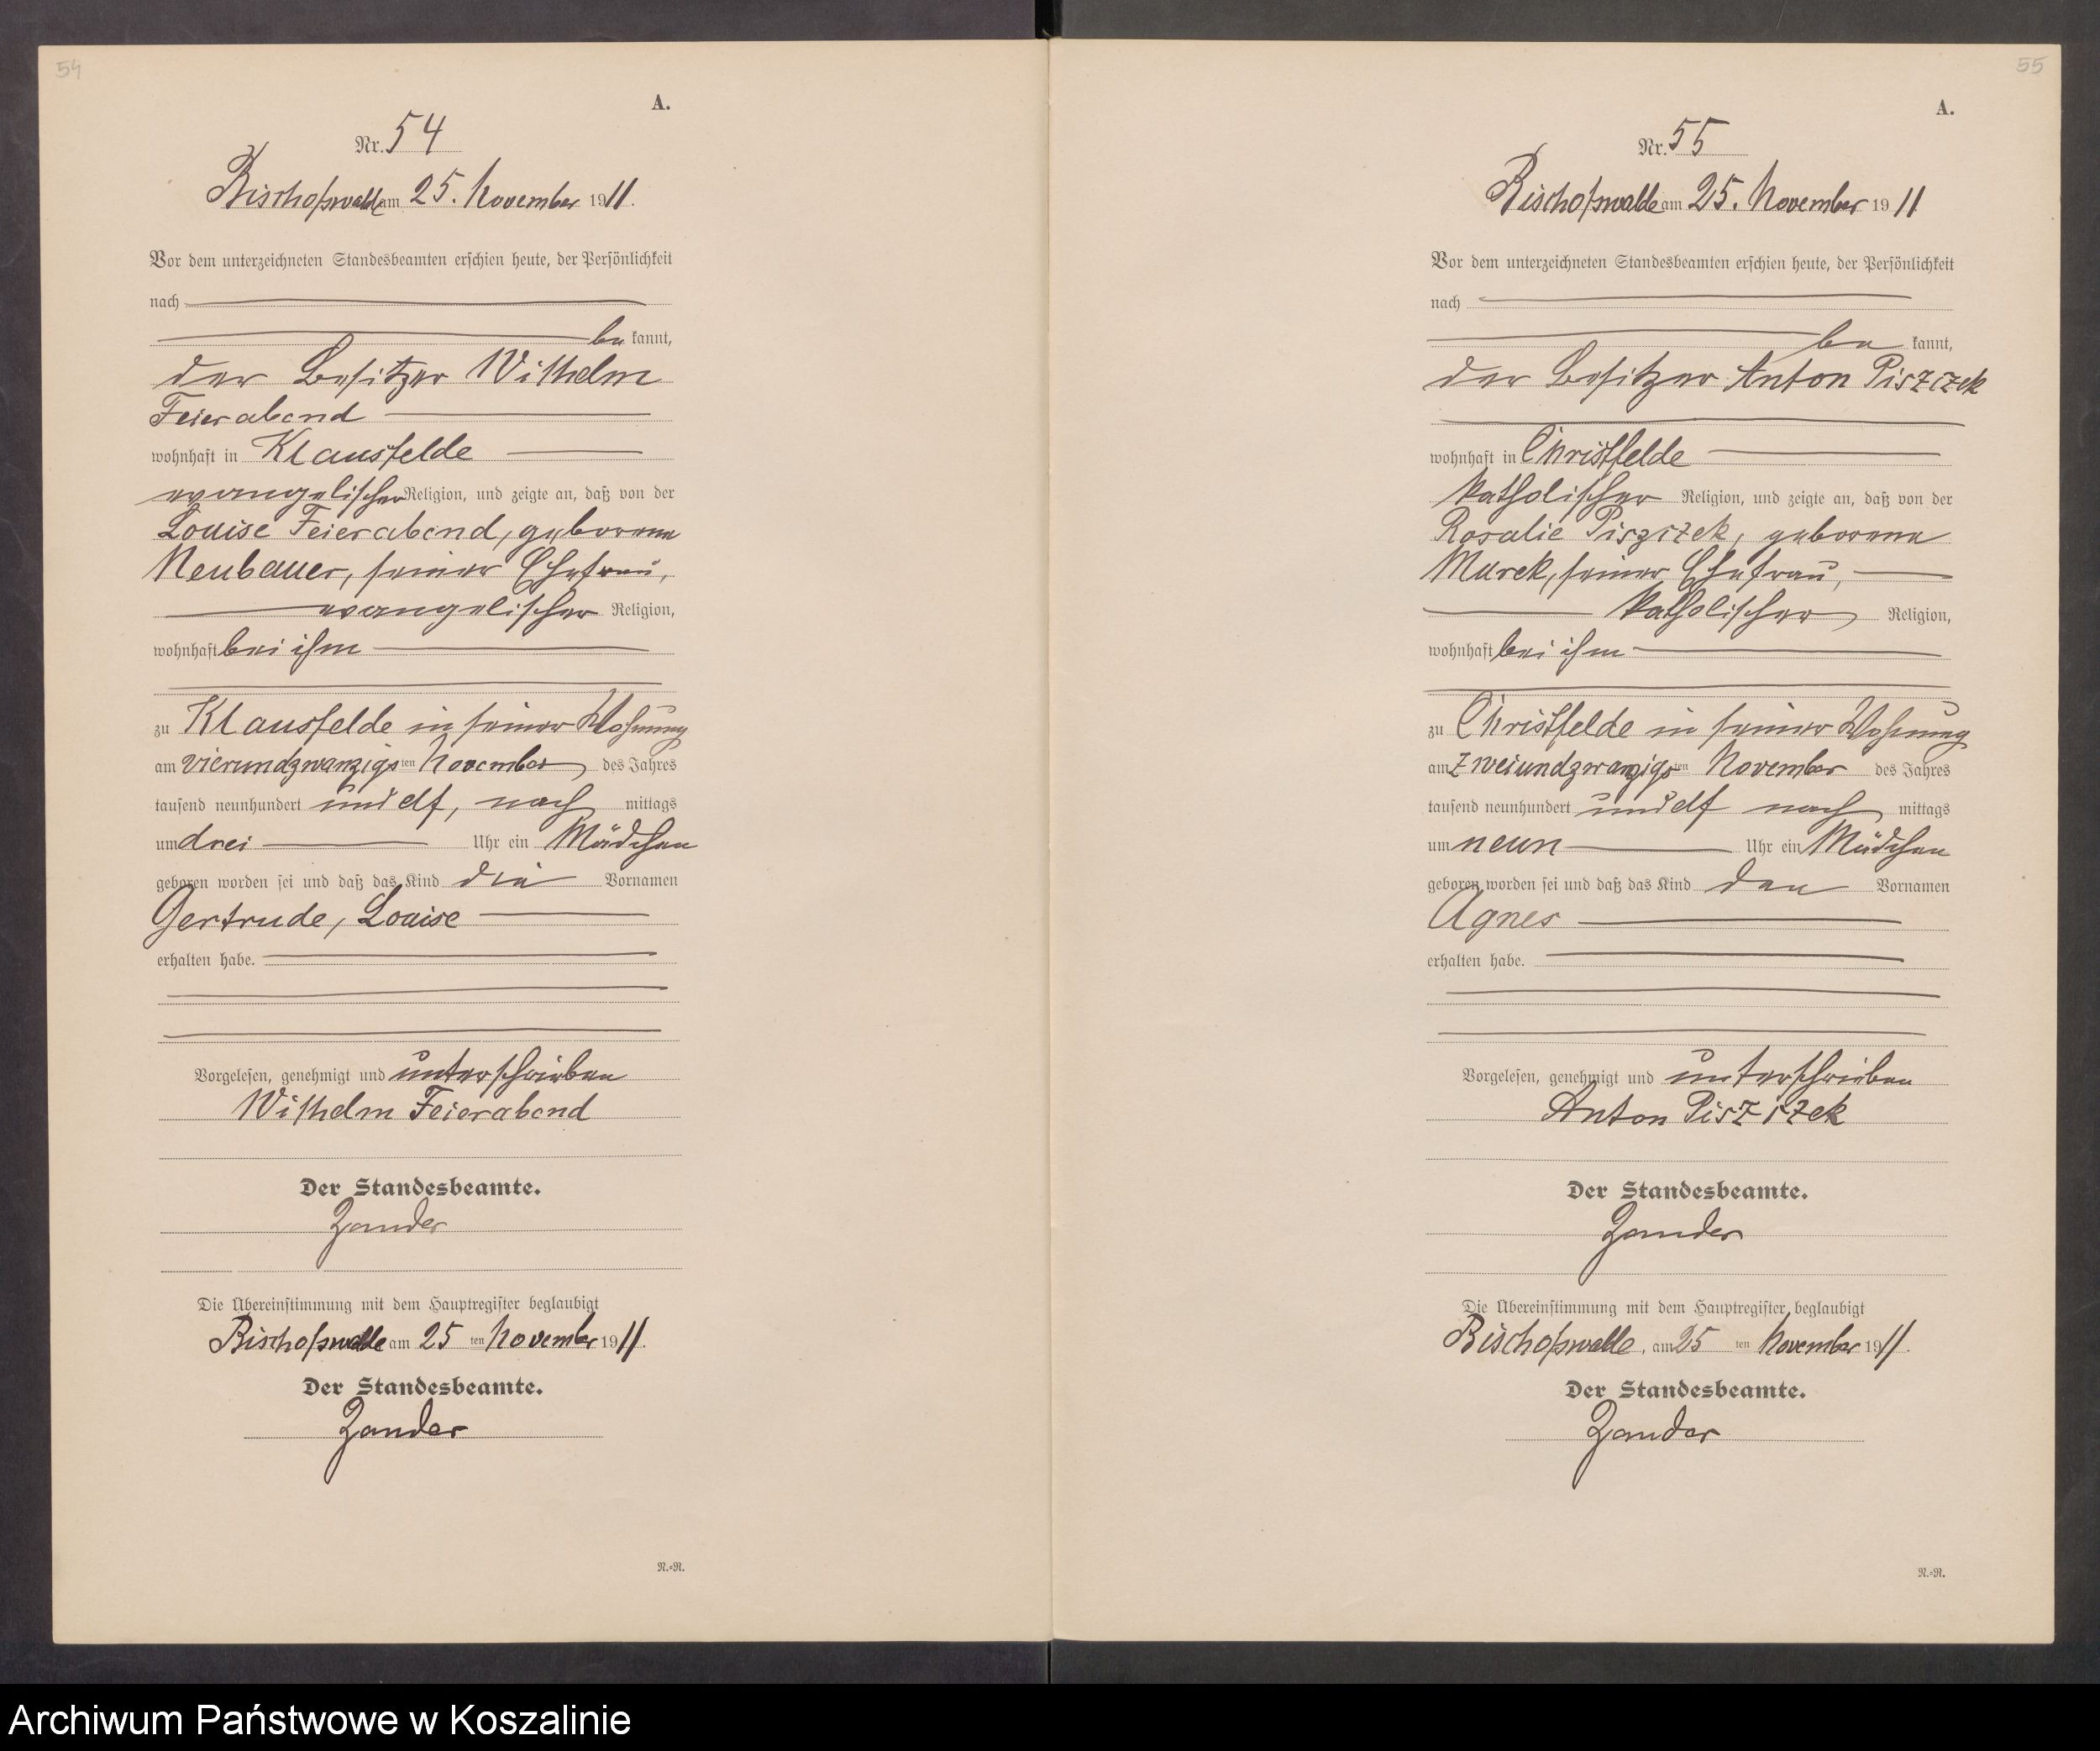 54
A.
Nr. 54
Bischofswalde am 25. November 1911.
Vor dem unterzeichneten Standesbeamten erschien heute, der Persönlichkeit
nach
be kannt,
der Besitzer Wilhelm
Feierabend
wohnhaft in Klausfelde
evangelischer Religion, und zeigte an, daß von der
Louise Feierabend, geborene
Neubauer, seiner Ehefrau,
evangelischer Religion,
wohnhaft bei ihm
zu Klausfelde in seiner Wohnung
am vierundzwanzigsten November des Jahres
tausend neunhundert und elf, nach mittags
um drei Uhr ein Mädchen
geboren worden sei und daß das Kind die Vornamen
Gertrude, Louise
erhalten habe.
Vorgelesen, genehmigt und unterschrieben
Wilhelm Feierabend
Der Standesbeamte.
Zander
Die Übereinstimmung mit dem Hauptregister beglaubigt
Bischofswalde am 25 ten November 1911.
Der Standesbeamte.
Zander
N.=N.
55
A.
Nr. 55
Bischofswalde am 25. November 1911
Vor dem unterzeichneten Standesbeamten erschien heute, der Persönlichkeit
nach
be kannt,
der Besitzer Anton Piszczek
wohnhaft in Christfelde
katholischer Religion, und zeigte an, daß von der
Rosalie Piszczek, geborene
Murek, seiner Ehefrau,
katholischer Religion,
wohnhaft bei ihm
zu Christfelde in seiner Wohnung
am zweiundzwanzigsten November des Jahres
tausend neunhundert und elf nach mittags
um neun Uhr ein Mädchen
geboren worden sei und daß das Kind den Vornamen
Agnes
erhalten habe.
Vorgelesen, genehmigt und unterschrieben
Anton Piszczek
Der Standesbeamte.
Zander
Die Übereinstimmung mit dem Hauptregister beglaubigt
Bischofswalde, am 25 ten November 1911.
Der Standesbeamte.
Zander
N.=N.
Archiwum Państwowe w Koszalinie